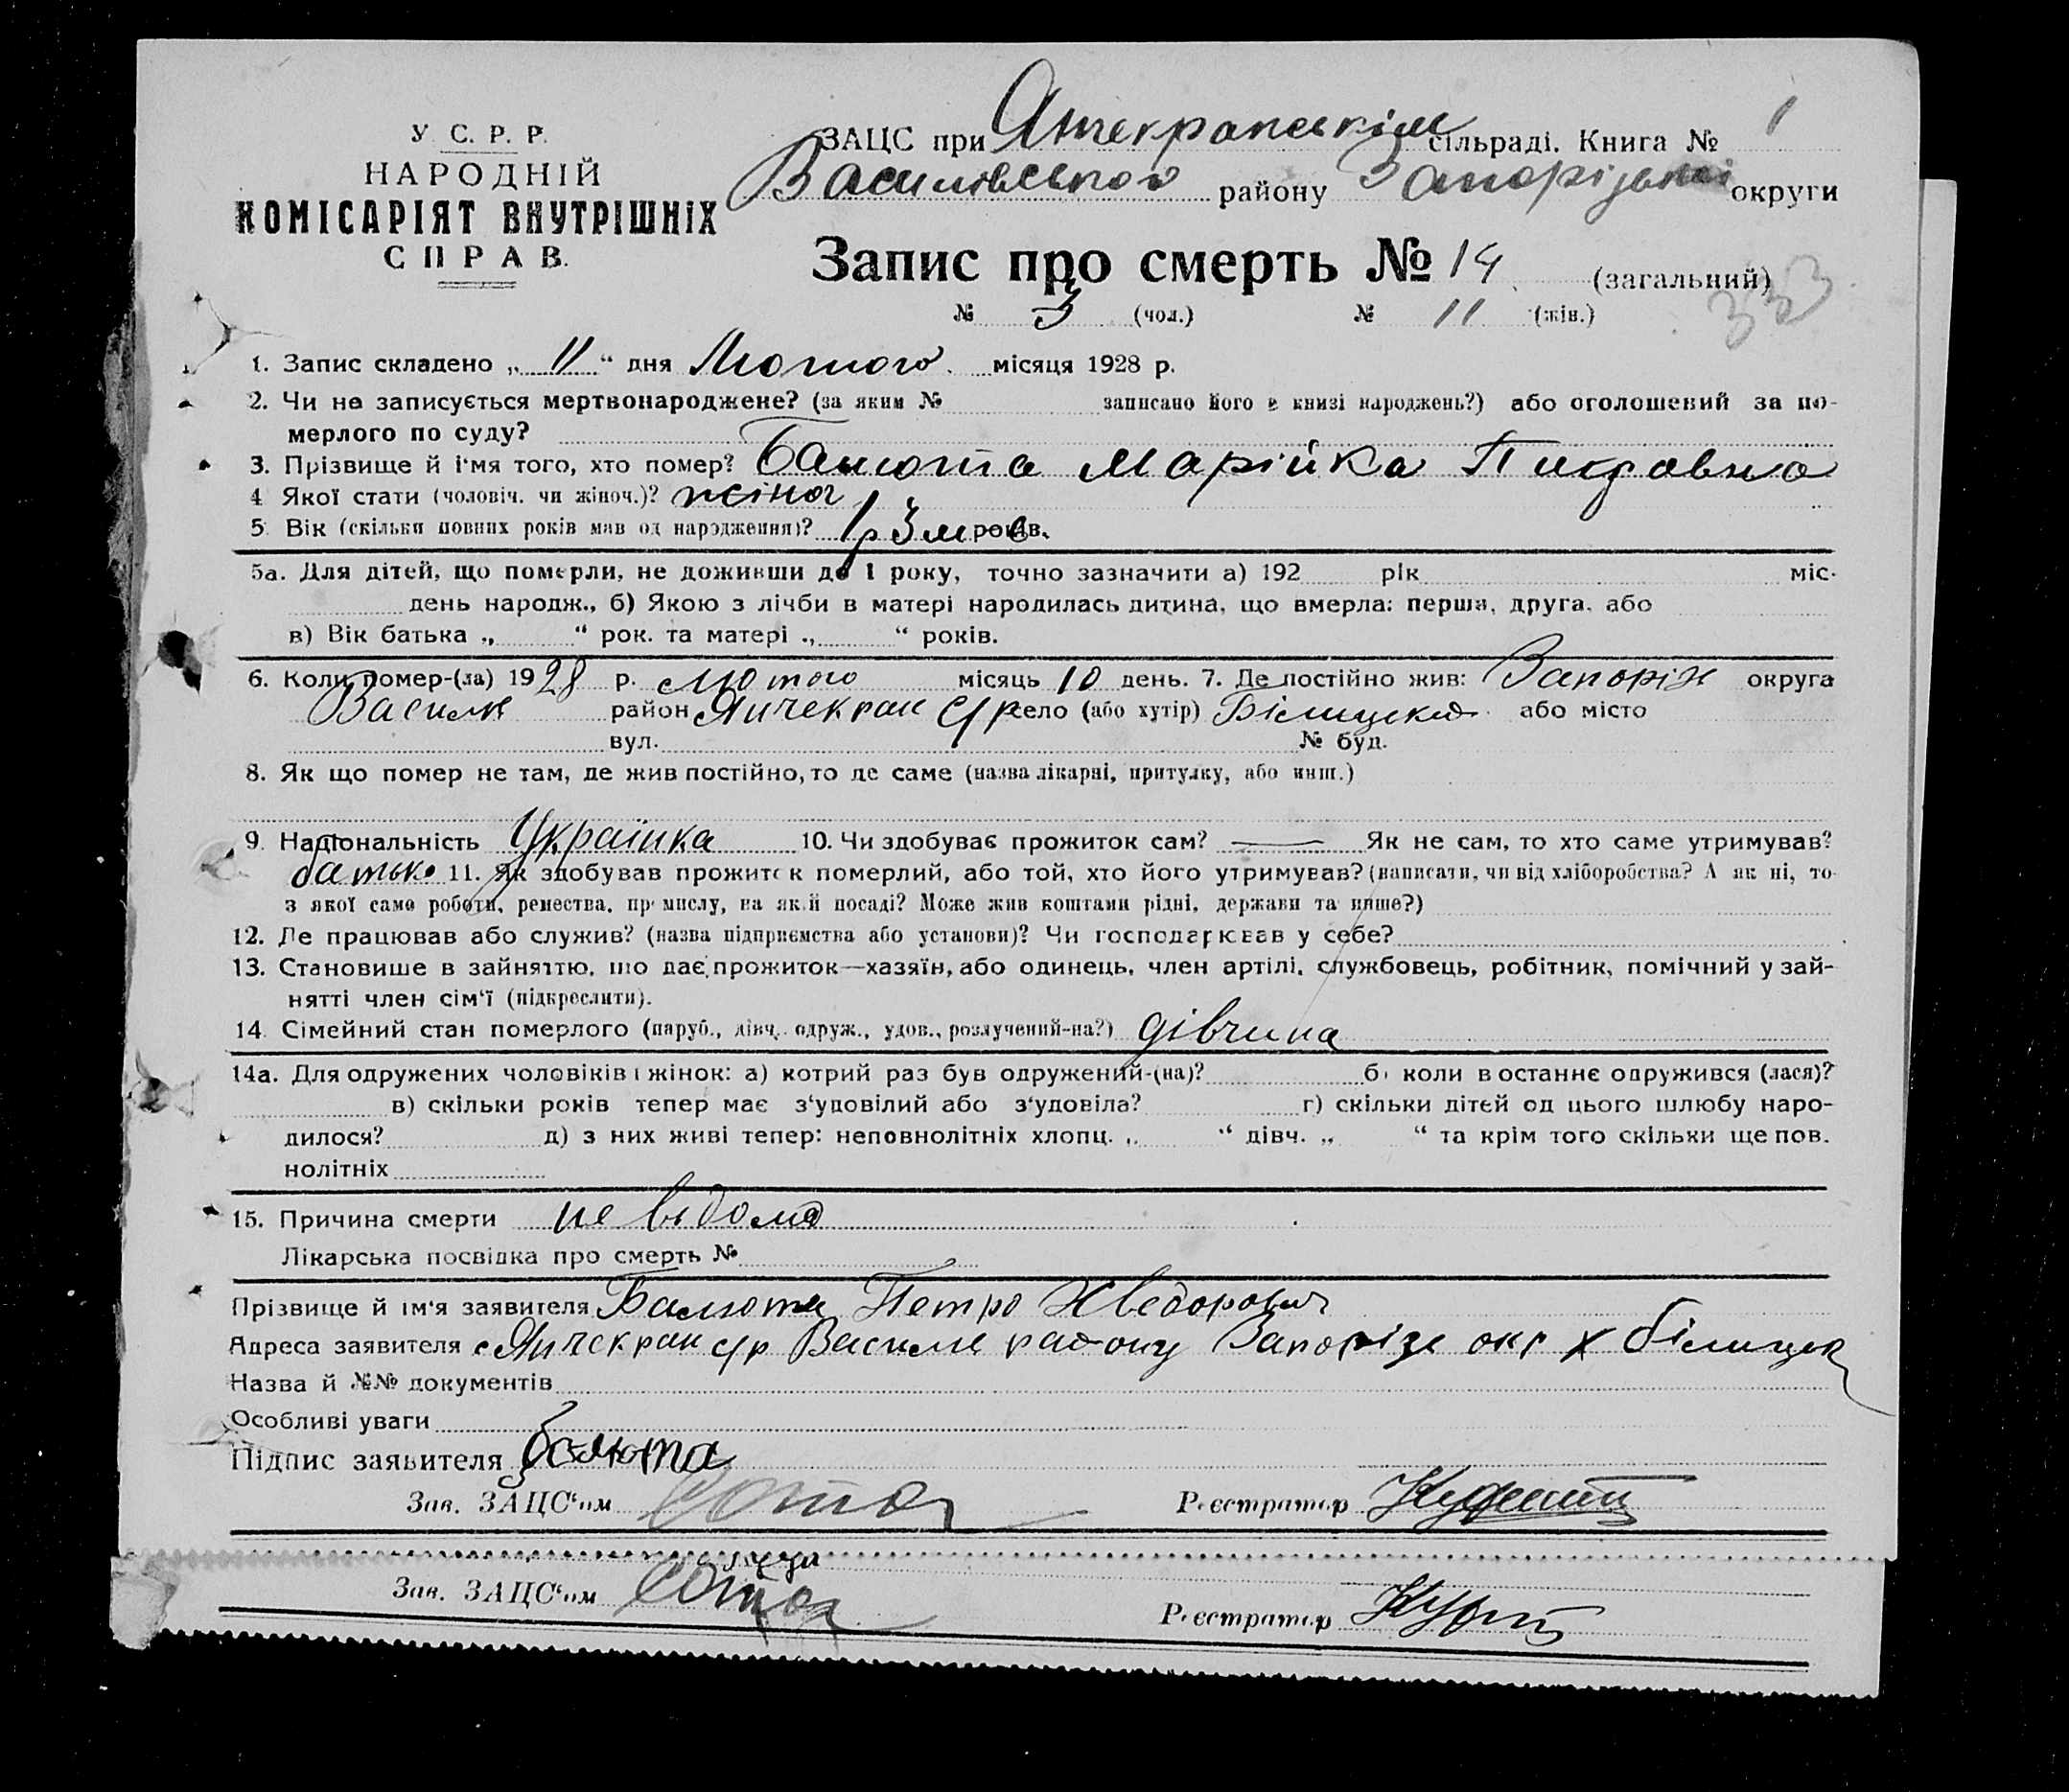 У. С. Р. Р.
НАРОДНІЙ
КОМІСАРІЯТ ВНУТРІШНІХ
СПРАВ.
ЗАЦС при Янчекранськім сільраді. Книга № 1
Василівського району Запорізької округи
Запис про смерть № 14 (загальний)
353
№ 3 (чол.) № 11 (жін.)
1. Запис складено „ 11 “ дня Лютого місяця 1928 р.
2. Чи не записується мертвонароджене? (за яким № записано його в книзі народжень?) або оголошений за по-
мерлого по суду?
3. Прізвище й ім'я того, хто помер? Балюта Марійка
4 Якої стати (чоловіч. чи жіноч.)? жіноч
5. Вік (скільки повних років мав од народження)? 1р 3м років.
5а. Для дітей, що померли, не доживши до 1 року, точно зазначити а) 192 рік міс.
день народж., б) Якою з лічби в матері народилась дитина, що вмерла: перша, друга, або
в) Вік батька „ “ рок. та матері „ “ років.
6. Коли помер-(ла) 1928 р. лютого місяць 10 день. 7. Де постійно жив: Запоріж округа
Василів район Янчекран с/р село (або хутір) Білицька або місто
вул. № буд.
8. Як що помер не там, де жив постійно, то де саме (назва лікарні, притулку, або инш.)
9. Національність Українка 10. Чи здобуває прожиток сам? — Як не сам, то хто саме утримував?
батько 11. Як здобував прожиток померлий, або той, хто його утримував? (написати, чи від хліборобства? А як ні, то
з якої саме роботи, ремества, промислу, на якій посаді? Може жив коштами рідні, держави та инше?)
12. Де працював або служив? (назва підприємства або установи)? Чи господарював у себе?
13. Становище в зайняттю, що дає прожиток—хазяїн, або одинець, член артілі, службовець, робітник, помічний у зай-
нятті член сім'ї (підкреслити).
14. Сімейний стан померлого (паруб., дівч., одруж., удов., розлучений-на?) дівчина
14а. Для одружених чоловіків і жінок: а) котрий раз був одружений-(на)? б) коли востаннє одружився (лася)?
в) скільки років тепер має з'удовілий або з'удовіла? г) скільки дітей од цього шлюбу наро-
дилося? д) з них живі тепер: неповнолітніх хлопц. „ “ дівч. „ “ та крім того скільки ще пов.
нолітніх
15. Причина смерти не відома
Лікарська посвідка про смерть №
Прізвище й ім'я заявителя Балюта Петро Хведорович
Адреса заявителя с Янчекран с/р Василів району Запоріз окр х Білицьк
Назва й №№ документів
Особливі уваги
Підпис заявителя балюта
Зав. ЗАЦС'ом Реєстратор
Зав. ЗАЦС'ом Реєстратор